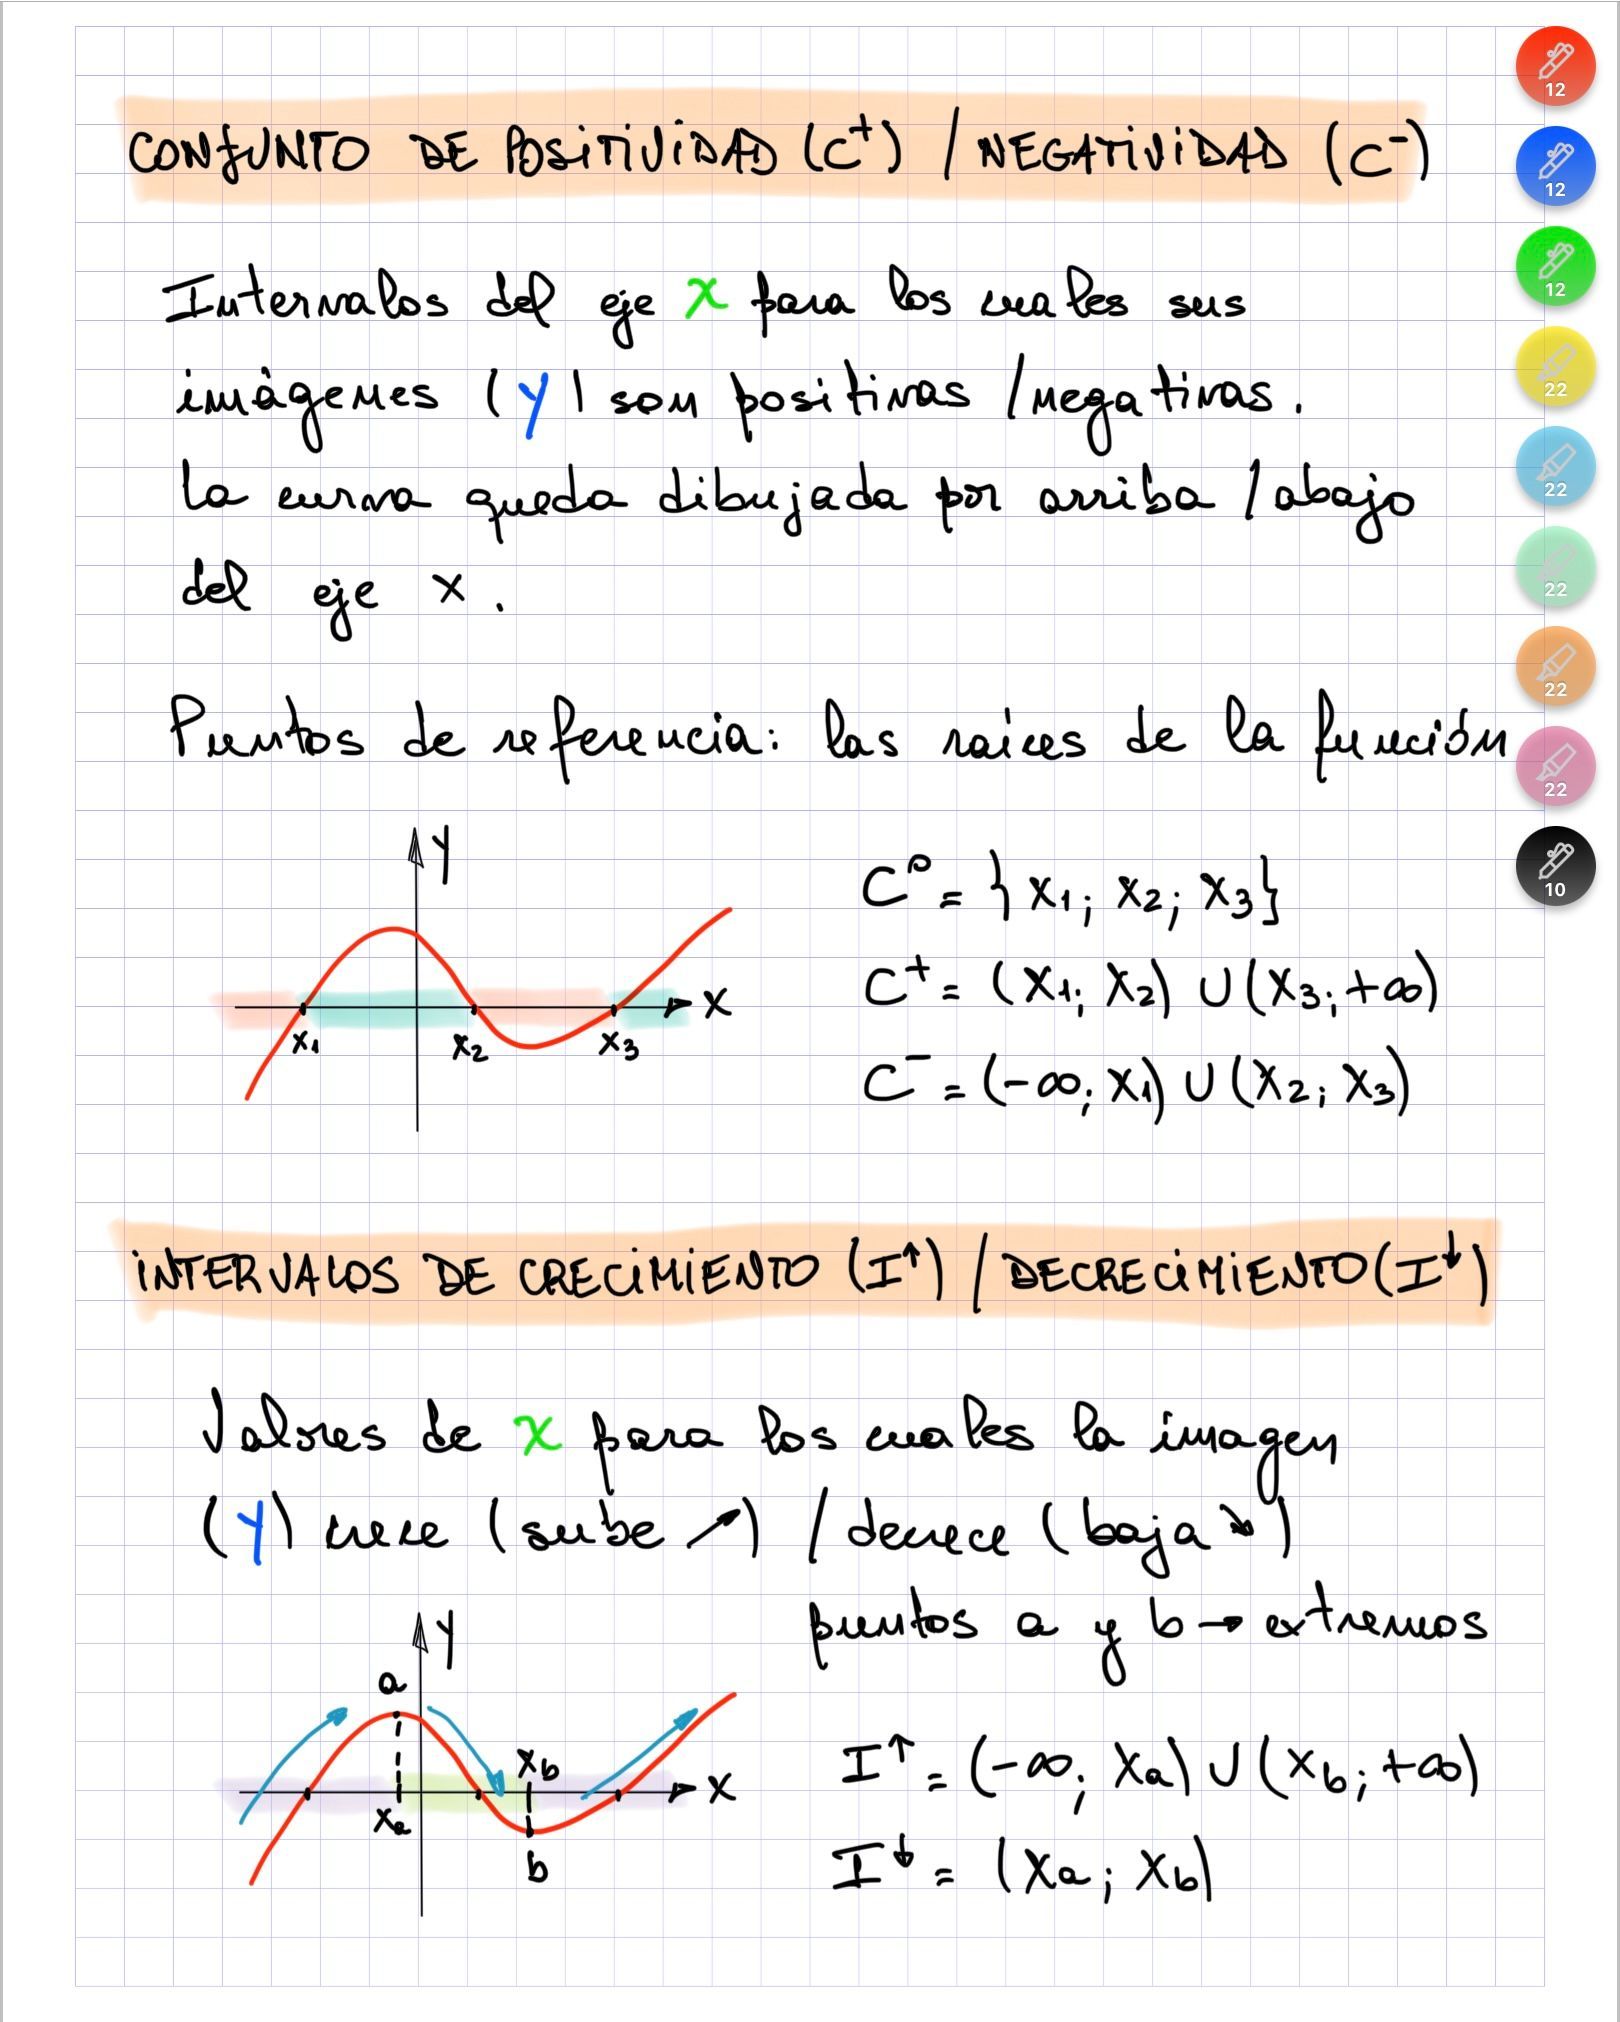 CONJUNTO DE POSITIVIDAD (C⁺) / NEGATIVIDAD (C⁻)
Intervalos del eje x para los cuales sus
imágenes (y) son positivas / negativas.
La curva queda dibujada por arriba / abajo
del eje x.
Puntos de referencia: las raíces de la función
y
x
x₁
x₂
x₃
C⁰ = {x₁; x₂; x₃}
C⁺ = (x₁; x₂) ∪ (x₃; +∞)
C⁻ = (-∞; x₁) ∪ (x₂; x₃)
INTERVALOS DE CRECIMIENTO (I↑) / DECRECIMIENTO (I↓)
Valores de x para los cuales la imagen
(y) crece (sube ↗) / decrece (baja ↘)
puntos a y b → extremos
y
a
x_b
x
x_a
b
I↑ = (-∞; x_a) ∪ (x_b; +∞)
I↓ = (x_a; x_b)
12
12
12
22
22
22
22
22
10